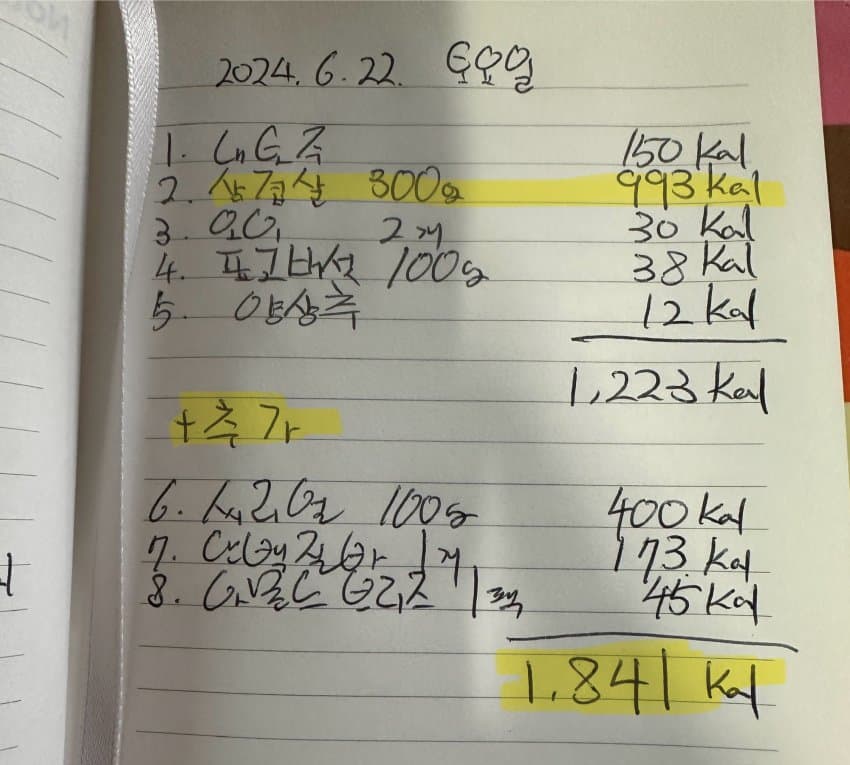 2024. 6. 22. 토요일
1. 야채죽 150 Kal
2. 삼겹살 300g 993 Kal
3. 오이 2개 30 Kal
4. 표고버섯 100g 38 Kal
5. 양상추 12 Kal
1,223 Kal
+ 추가
6. 시리얼 100g 400 Kal
7. 단백질바 1개 173 Kal
8. 아몬드 브리즈 1팩 45 Kal
1,841 Kal